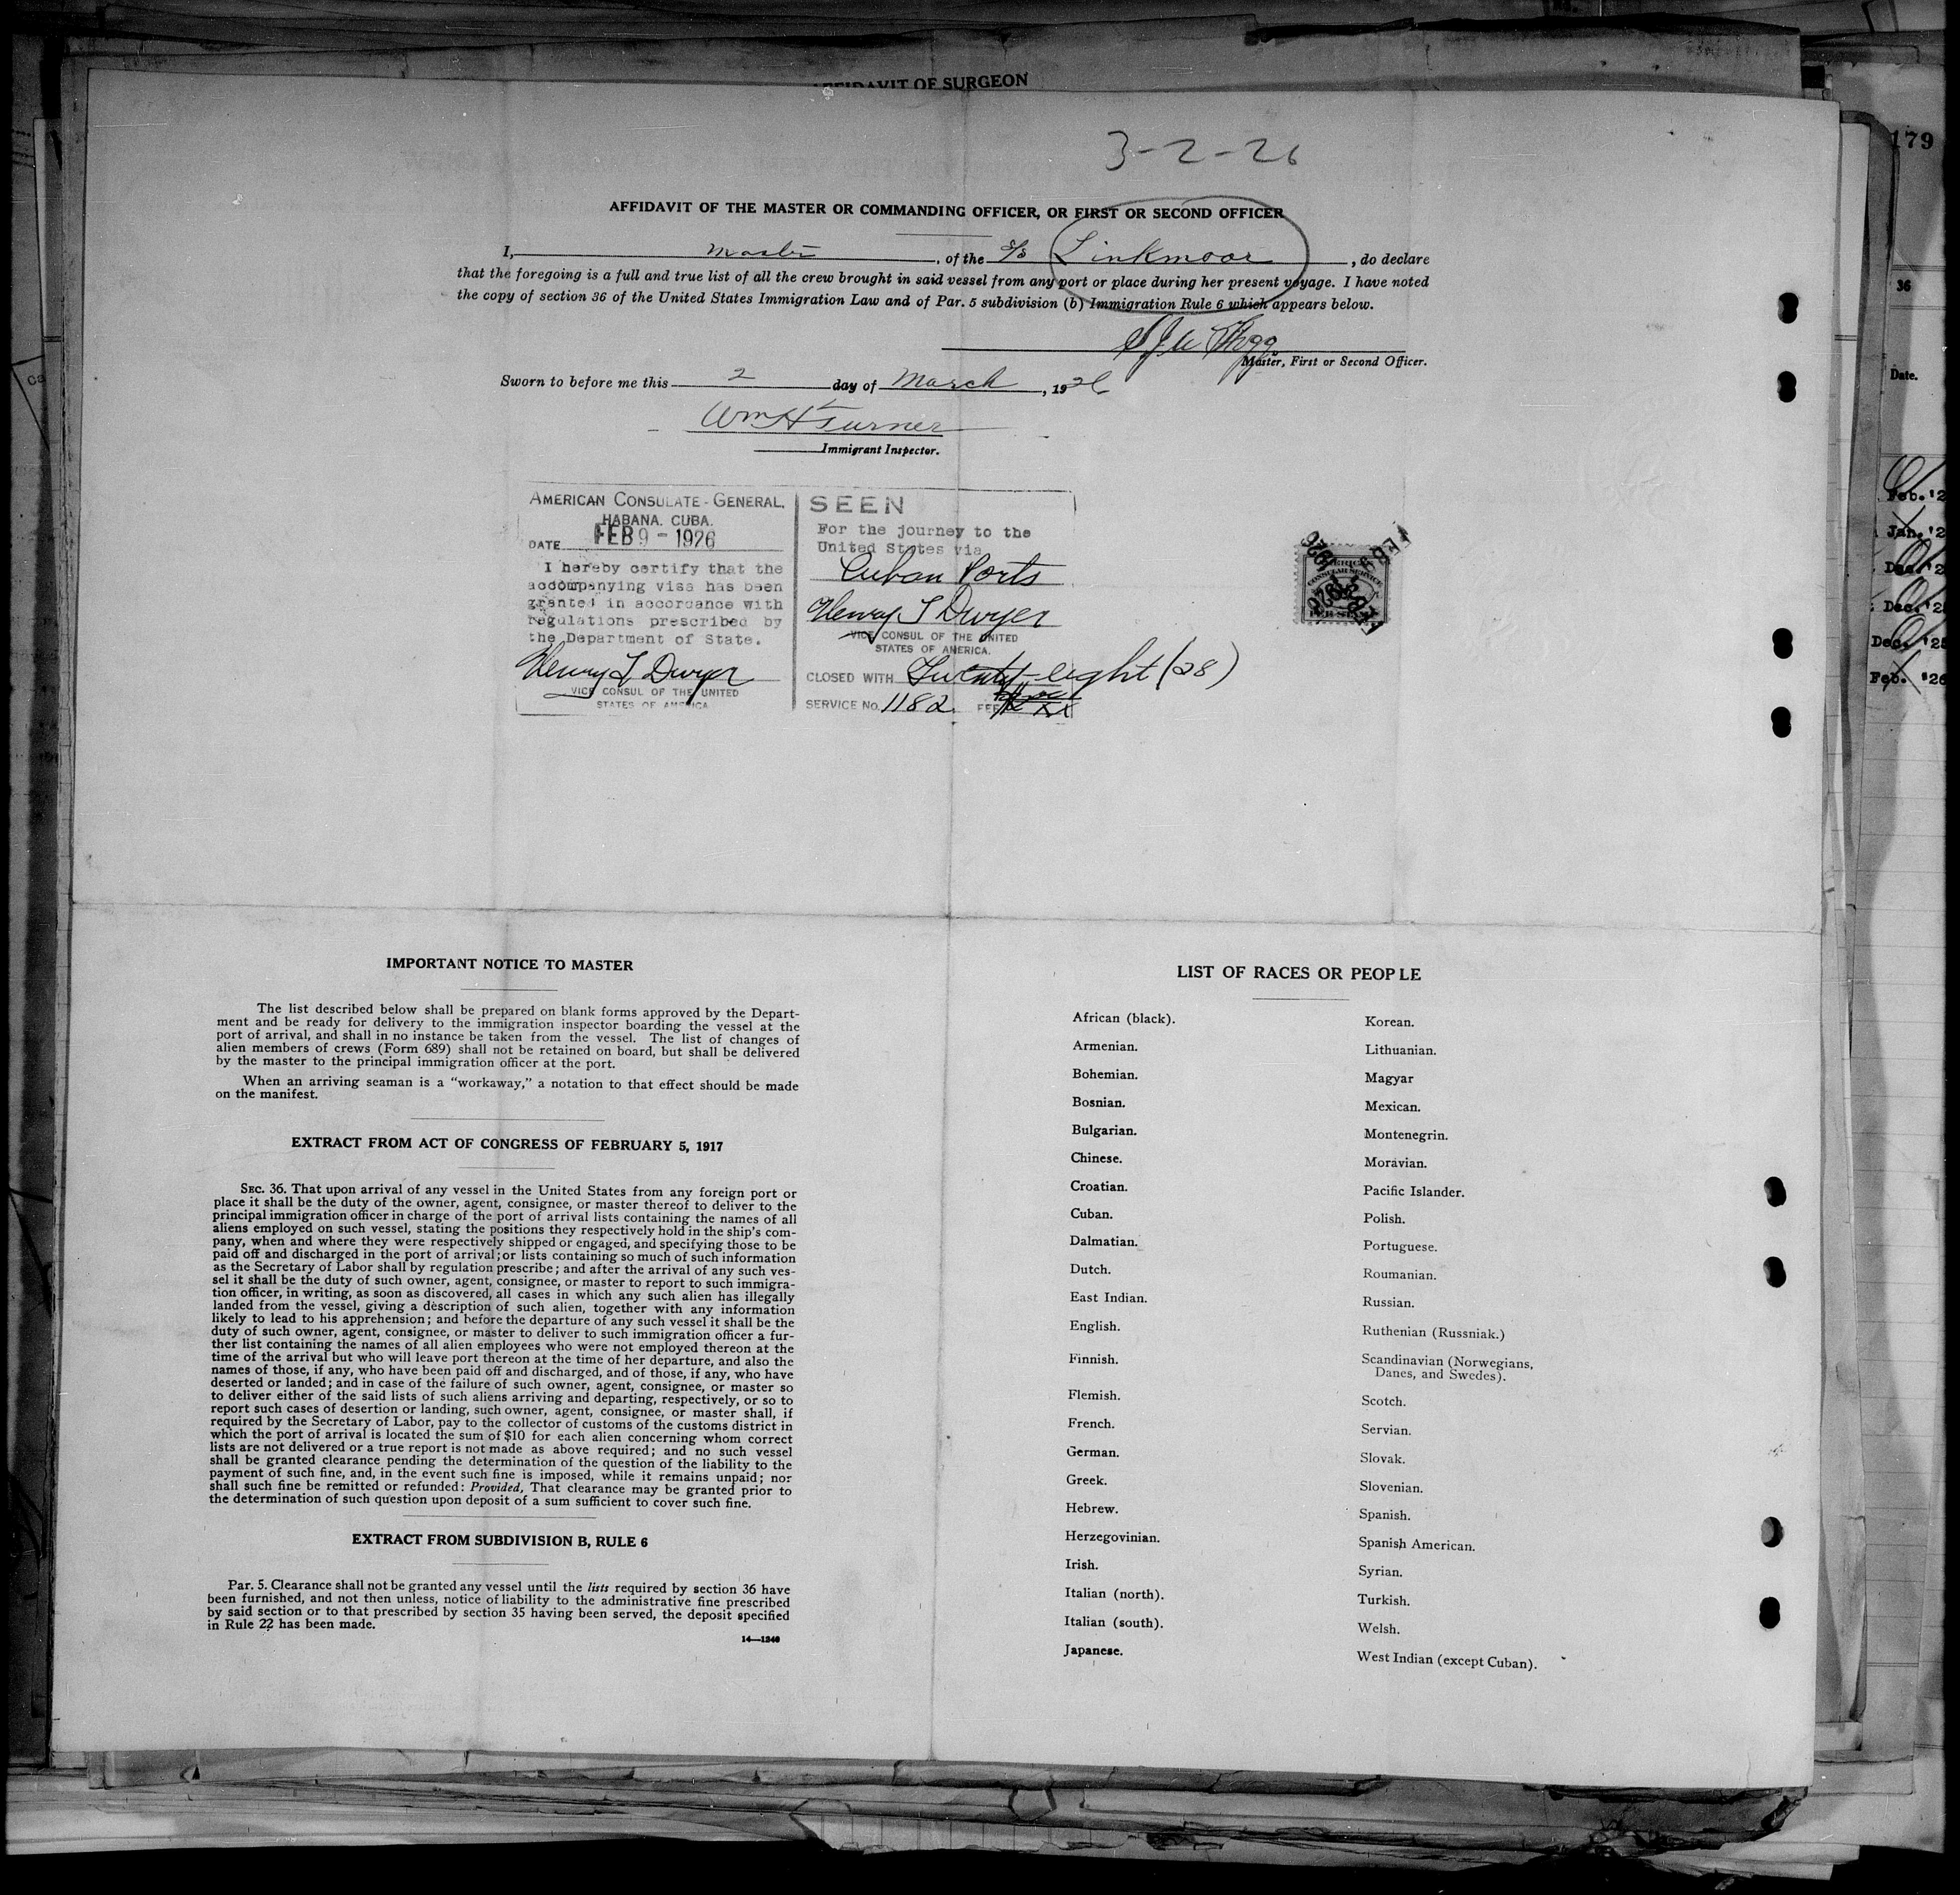 AFFIDAVIT OF SURGEON
3-2-26
179
AFFIDAVIT OF THE MASTER OR COMMANDING OFFICER, OR FIRST OR SECOND OFFICER
I, master, of the S/S Linkmoor, do declare
that the foregoing is a full and true list of all the crew brought in said vessel from any port or place during her present voyage. I have noted
the copy of section 36 of the United States Immigration Law and of Par. 5 subdivision (b) Immigration Rule 6 which appears below.
36
Master, First or Second Officer.
Sworn to before me this 2 day of March, 1926
Wm H Turner
Immigrant Inspector.
Date.
AMERICAN CONSULATE-GENERAL,
HABANA. CUBA.
DATE FEB 9 - 1926
I hereby certify that the
accompanying visa has been
granted in accordance with
regulations prescribed by
the Department of State.
Henry T Dwyer
VICE CONSUL OF THE UNITED
STATES OF AMERICA
SEEN
For the journey to the
United States via
Cuban Ports
Henry T Dwyer
VICE CONSUL OF THE UNITED
STATES OF AMERICA.
CLOSED WITH Twenty-eight (28)
SERVICE No. 1182. FEE
Feb. '2
Jan. '2
Dec. '2
Dec. '2
Dec. '25
Feb. '26
IMPORTANT NOTICE TO MASTER
The list described below shall be prepared on blank forms approved by the Depart-
ment and be ready for delivery to the immigration inspector boarding the vessel at the
port of arrival, and shall in no instance be taken from the vessel. The list of changes of
alien members of crews (Form 689) shall not be retained on board, but shall be delivered
by the master to the principal immigration officer at the port.
When an arriving seaman is a "workaway," a notation to that effect should be made
on the manifest.
EXTRACT FROM ACT OF CONGRESS OF FEBRUARY 5, 1917
SEC. 36. That upon arrival of any vessel in the United States from any foreign port or
place it shall be the duty of the owner, agent, consignee, or master thereof to deliver to the
principal immigration officer in charge of the port of arrival lists containing the names of all
aliens employed on such vessel, stating the positions they respectively hold in the ship's com-
pany, when and where they were respectively shipped or engaged, and specifying those to be
paid off and discharged in the port of arrival; or lists containing so much of such information
as the Secretary of Labor shall by regulation prescribe; and after the arrival of any such ves-
sel it shall be the duty of such owner, agent, consignee, or master to report to such immigra-
tion officer, in writing, as soon as discovered, all cases in which any such alien has illegally
landed from the vessel, giving a description of such alien, together with any information
likely to lead to his apprehension; and before the departure of any such vessel it shall be the
duty of such owner, agent, consignee, or master to deliver to such immigration officer a fur-
ther list containing the names of all alien employees who were not employed thereon at the
time of the arrival but who will leave port thereon at the time of her departure, and also the
names of those, if any, who have been paid off and discharged, and of those, if any, who have
deserted or landed; and in case of the failure of such owner, agent, consignee, or master so
to deliver either of the said lists of such aliens arriving and departing, respectively, or so to
report such cases of desertion or landing, such owner, agent, consignee, or master shall, if
required by the Secretary of Labor, pay to the collector of customs of the customs district in
which the port of arrival is located the sum of $10 for each alien concerning whom correct
lists are not delivered or a true report is not made as above required; and no such vessel
shall be granted clearance pending the determination of the question of the liability to the
payment of such fine, and, in the event such fine is imposed, while it remains unpaid; nor
shall such fine be remitted or refunded: Provided, That clearance may be granted prior to
the determination of such question upon deposit of a sum sufficient to cover such fine.
EXTRACT FROM SUBDIVISION B, RULE 6
Par. 5. Clearance shall not be granted any vessel until the lists required by section 36 have
been furnished, and not then unless, notice of liability to the administrative fine prescribed
by said section or to that prescribed by section 35 having been served, the deposit specified
in Rule 22 has been made.
14—1240
LIST OF RACES OR PEOPLE
African (black).
Armenian.
Bohemian.
Bosnian.
Bulgarian.
Chinese.
Croatian.
Cuban.
Dalmatian.
Dutch.
East Indian.
English.
Finnish.
Flemish.
French.
German.
Greek.
Hebrew.
Herzegovinian.
Irish.
Italian (north).
Italian (south).
Japanese.
Korean.
Lithuanian.
Magyar
Mexican.
Montenegrin.
Moravian.
Pacific Islander.
Polish.
Portuguese.
Roumanian.
Russian.
Ruthenian (Russniak.)
Scandinavian (Norwegians,
Danes, and Swedes).
Scotch.
Servian.
Slovak.
Slovenian.
Spanish.
Spanish American.
Syrian.
Turkish.
Welsh.
West Indian (except Cuban).